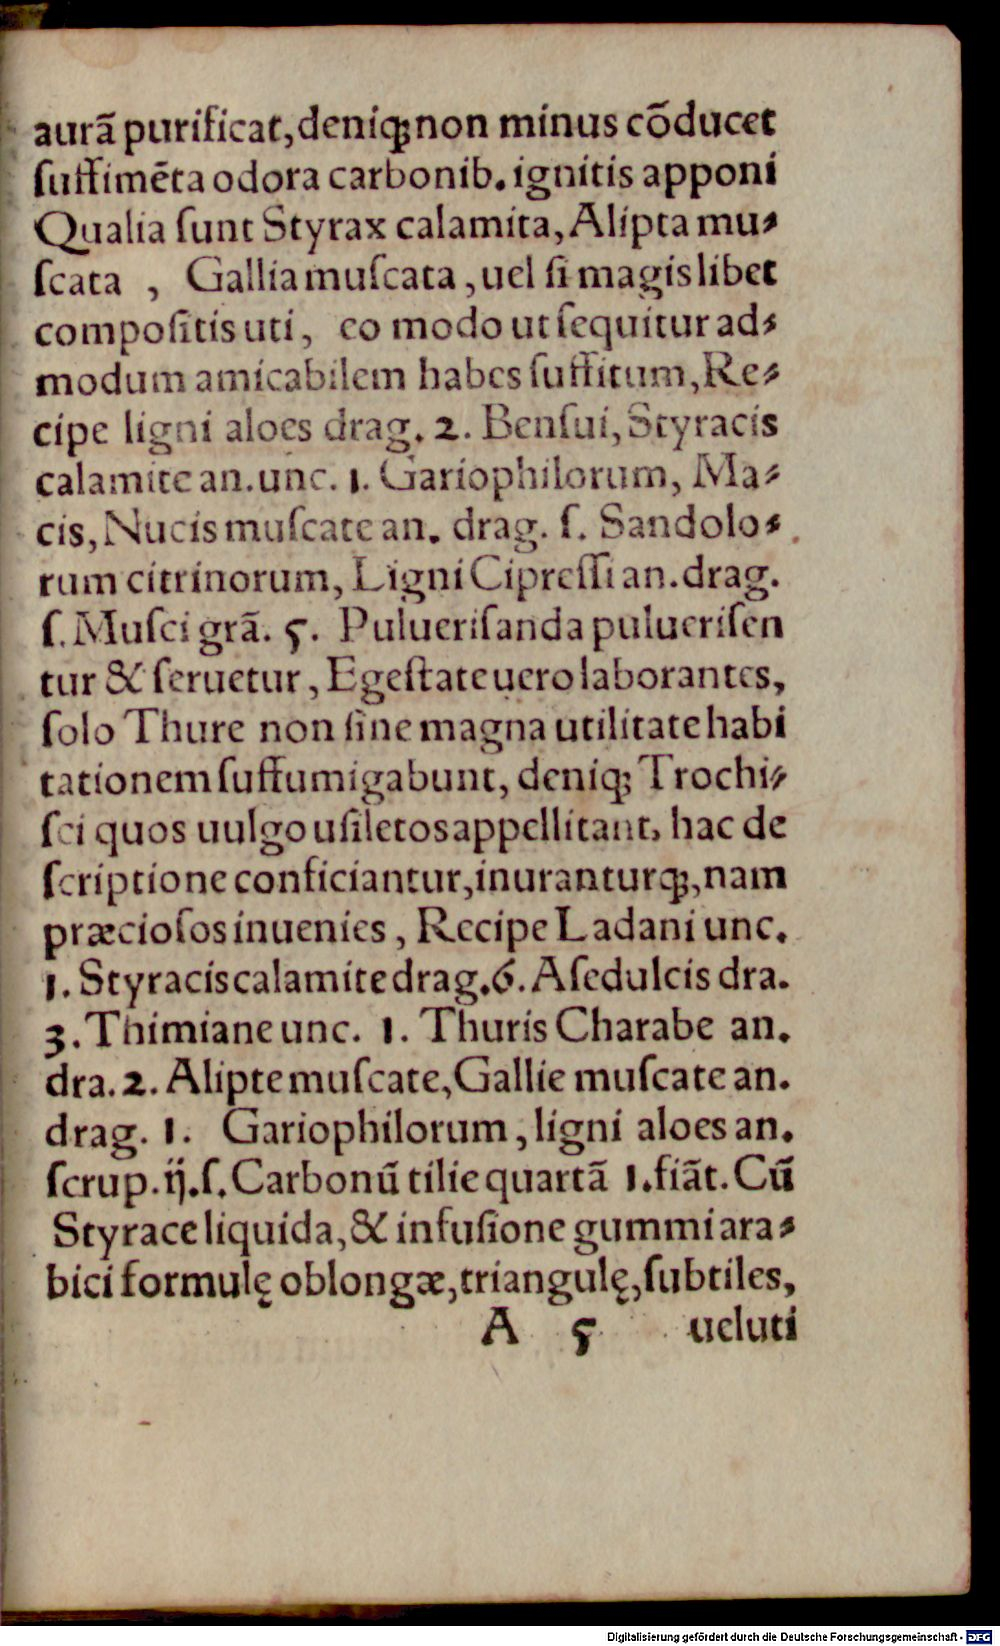 aurã purificat,deniqꝫ non minus cõducet
ſuffimẽta odora carbonib. ignitis apponi
Qualia ſunt Styrax calamita, Alipta mu⸗
ſcata , Gallia muſcata , uel ſi magis libet
compoſitis uti, eo modo ut ſequitur ad⸗
modum amicabilem habes ſuffitum, Re⸗
cipe ligni aloes drag. 2. Benſui, Styracis
calamite an. unc. 1. Gariophilorum, Ma⸗
cis, Nucis muſcate an. drag. ſ. Sandolo⸗
rum citrinorum, Ligni Cipreſſi an. drag.
ſ. Muſci grã. 5. Pulueriſanda pulueriſen
tur & ſeruetur , Egeſtate uero laborantes,
ſolo Thure non ſine magna utilitate habi
tationem ſuffumigabunt, deniqꝫ Trochi⸗
ſci quos uulgo uſiletos appellitant, hac de
ſcriptione conficiantur, inuranturqꝫ, nam
præcioſos inuenies , Recipe Ladani unc.
1. Styracis calamite drag. 6. Aſedulcis dra.
3. Thimiane unc. 1. Thuris Charabe an.
dra. 2. Alipte muſcate, Gallie muſcate an.
drag. 1. Gariophilorum , ligni aloes an.
ſcrup. ij. ſ. Carbonũ tilie quartã 1. fiãt. Cũ
Styrace liquida, & infuſione gummi ara⸗
bici formulę oblongæ, triangulę, ſubtiles,
A 5 ueluti
Digitalisierung gefördert durch die Deutsche Forschungsgemeinschaft - DFG